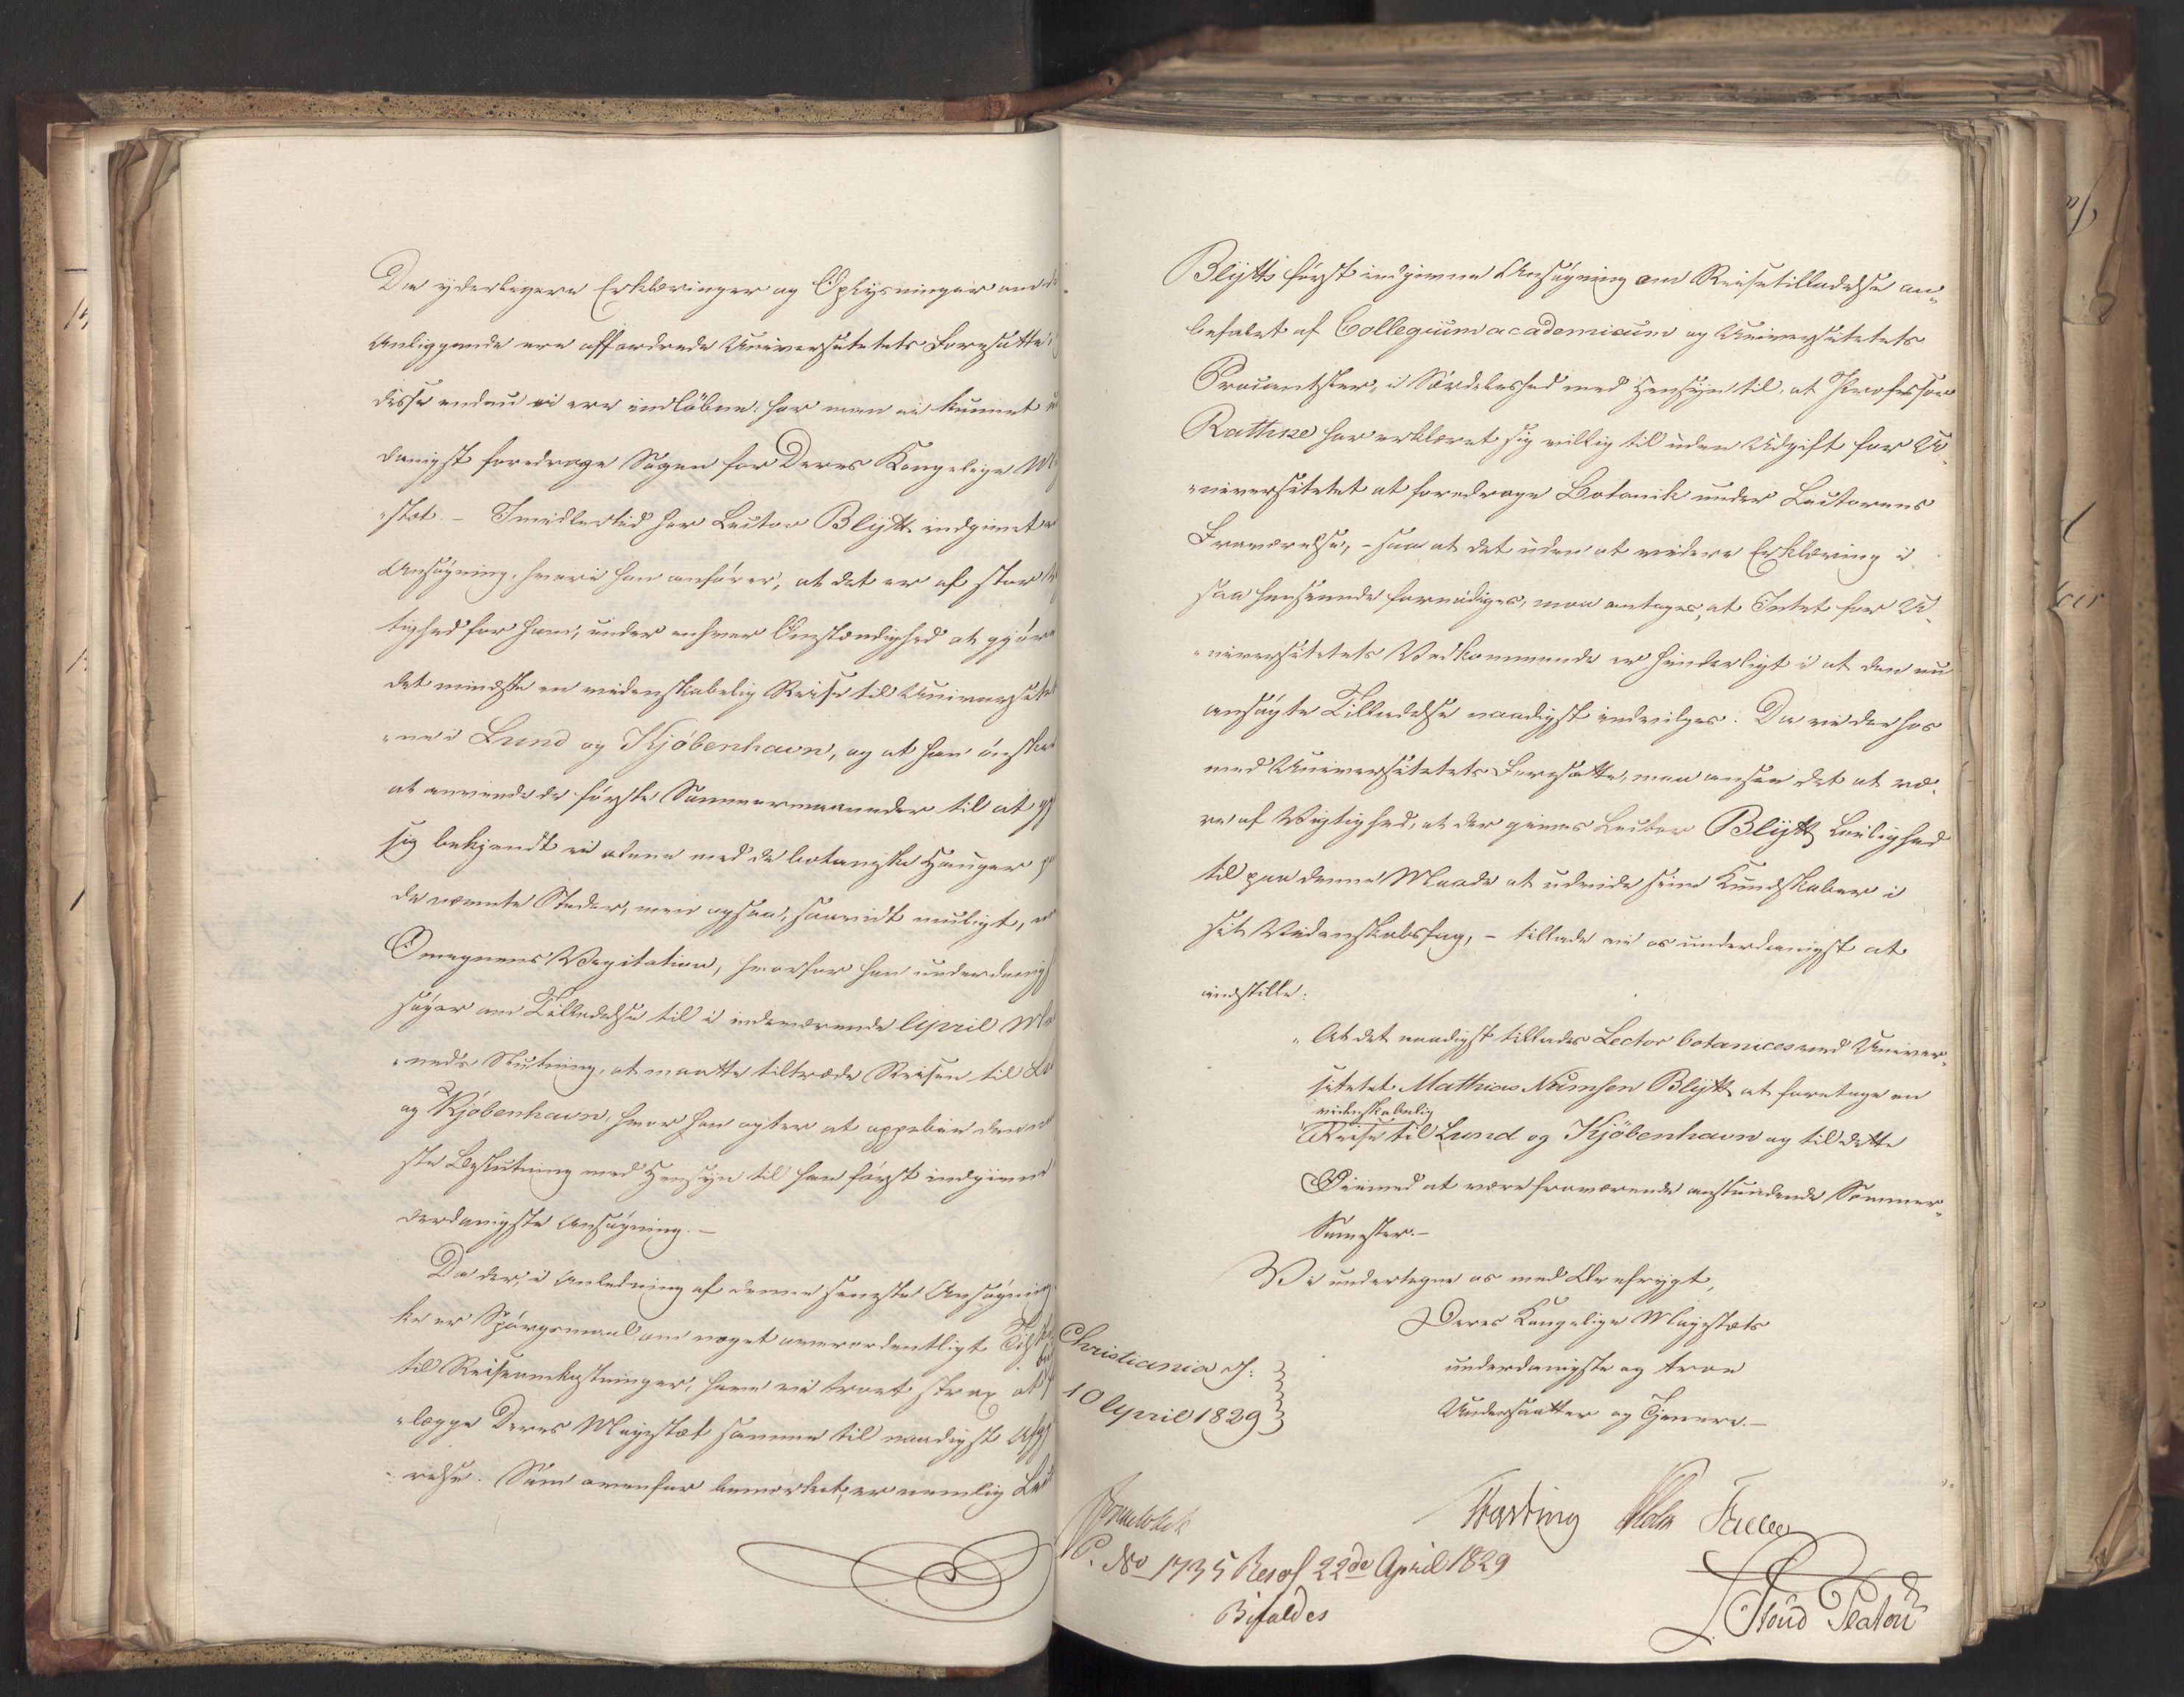 Da yderligere Erklæringer og Oplysninger om d
Anliggende ere affordrede Universitetets Foresatte,
disse endnu ei ere indløbne, har man ei kunnet u
danigst foredrage Sagen for Deres Kongelige M
„stæt. – Imidlertid har Lector Blytt indgivet
Ansøgning, hvori han anfører, at det er af stor
tighed for ham, under enhver Omstændighed at gjøre
det mindste en videnskabelig Reise til Universitet
„ne i Lund og Kjöbenhavn, og at han ønsker
at anvende de første Sommermaaneder til at gj
sig bekjendt ei alene med de botaniske Hauger p
de nævnte Steder, men ogsaa, saavidt muligt,
Omegnens Vegitation, hvorfor han underdanigst
søger om Tilladelse til i indeværende April Ma
„neds Slutning, at maatte tiltræde Reisen til Lu
og Kjöbenhavn, hvor han agter at oppebie den
ste Beslutning med Hensyn til han først indgivne
derdanigste Ansøgning. –
Da der, i Anledning af denne seneste Ansøgning
ke er Spørgsmaal om noget overordentligt Tilskud
til Reiseomkostninger, have vi troet strax at
„lægge Deres Majestæt samme til naadigst Afgj
„relse. Som ovenfor bemærket, er nemlig Lec
Blytts først indgivne Ansøgning om Reisetilladelse an„
befalet af Collegium academicum og Universitetets
Procantsler, i Særdeleshed med Hensyn til, at Professor
Rathke har erklæret sig villig til uden Udgift for U„
„niversitetet at foredrage Botanik under Lectorens
Fraværelse, – saa at det uden at videre Erklæring i
saa Henseende fornødiges, maa antages, at Intet for U„
„niversitetets Vedkommende er hinderligt i at den nu
ansøgte Tilladelse naadigst indvilges. Da vi derhos
med Universitetets Foresatte, maa ansee det at væ„
re af Vigtighed, at der gives Lector Blytt Leilighed
til paa denne Maade at udvide sine Kundskaber i
sit Videnskabsfag, – tillade vi os underdanigst at
indstille:
„At det naadigst tillades Lector botanices ved Univer„
sitetet Mathias Numsen Blytt at foretage en
videnskabelig
Reise til Lund og Kjöbenhavn og til dette
Øiemed at være fraværende anstundende Sommer„
Semester. –
Vi undertegne os med Ærefrygt,
Deres Kongelige Majestæts
underdanigste og troe
Undersaatter og Tjenere. –
Christiania d.
10 April 1829
Fasting Holst
L. Stoud Platou
P. No 1735 Resol 22de April 1829
Bifaldes